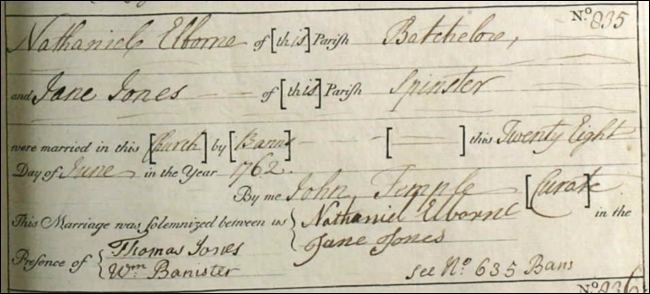 Nº 835
Nathaniel Elborne of [this] Parish Batchelor,
and Jane Jones of [this] Parish Spinster
were married in this [Church] by [Banns] [ ] this Twenty Eight
Day of June in the Year 1762.
By me John Temple [Curate] in the
This Marriage was solemnized between us { Nathaniel Elborne
Jane Jones
Presence of { Thomas Jones
Wm Banister
See Nº 635 Bans
Nº 836